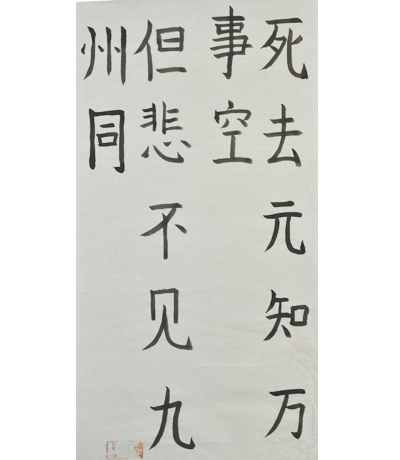 死去元知万
事空
但悲不见九
州同